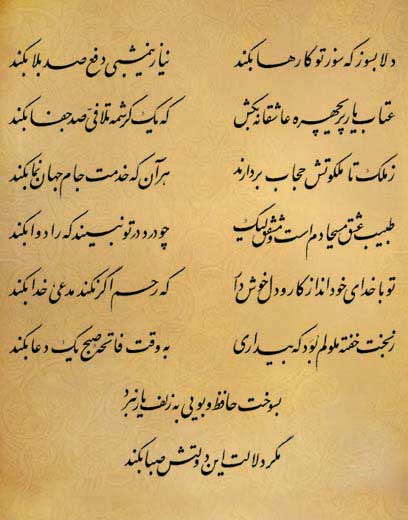 دلا بسوز که سوز تو کارها بکند نیاز نیمشبی دفع صد بلا بکند
عتاب یار پریچهره عاشقانه بکش که یک کرشمه تلافی صد جفا بکند
ز ملک تا ملکوتش حجاب بردارند هر آن که خدمت جام جهان نما بکند
طبیب عشق مسیحا دم است و مشفق لیک چو درد در تو نبیند که را دوا بکند
تو با خدای خود انداز کار و دل خوش دار که رحم اگر نکند مدعی خدا بکند
ز بخت خفته ملولم بود که بیداری به وقت فاتحه صبح یک دعا بکند
بسوخت حافظ و بویی به زلف یار نبرد
مگر دلالت این دولتش صبا بکند